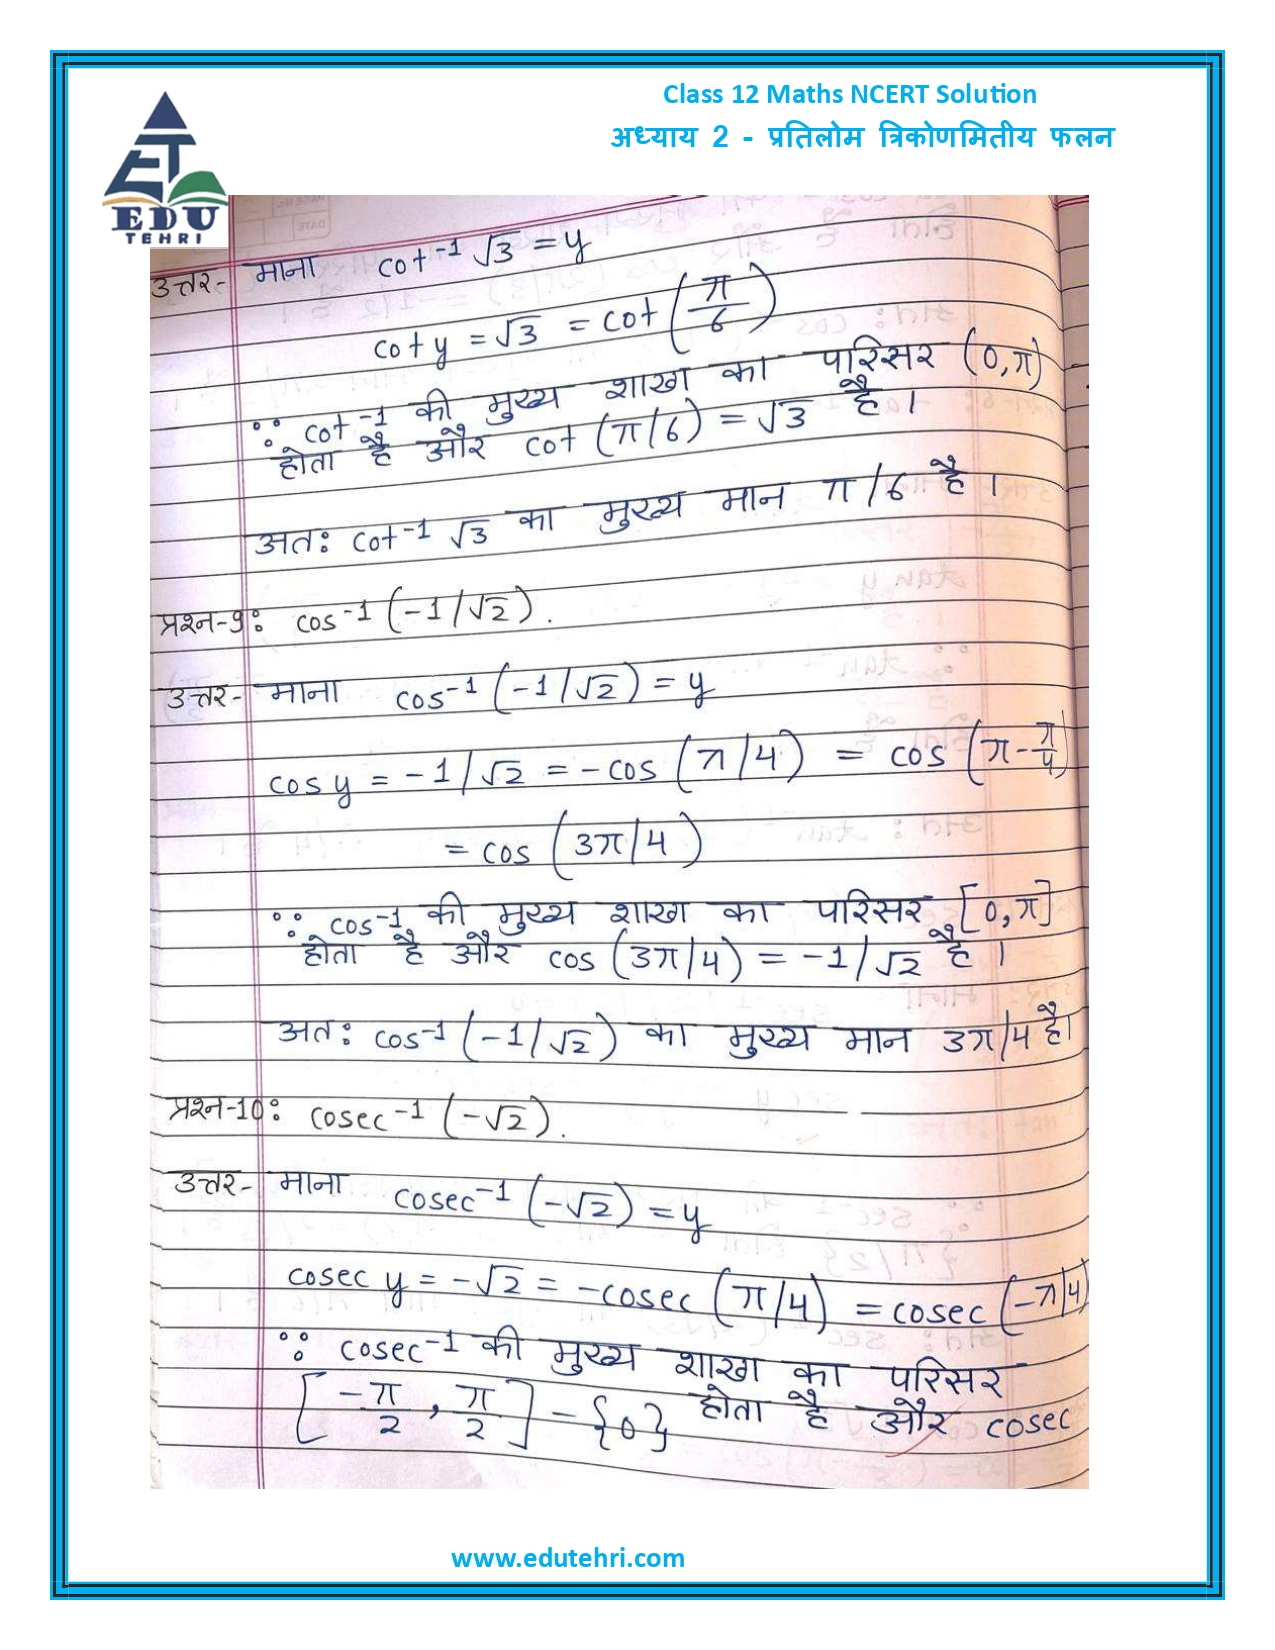 Class 12 Maths NCERT Solution
अध्याय 2 - प्रतिलोम त्रिकोणमितीय फलन
EDU
TEHRI
उत्तर- माना cot⁻¹ √3 = y
cot y = √3 = cot (π/6)
∵ cot⁻¹ की मुख्य शाख का परिसर (0, π)
होता है और cot (π/6) = √3 है।
अतः cot⁻¹ √3 का मुख्य मान π/6 है।
प्रश्न-9: cos⁻¹ (-1/√2).
उत्तर- माना cos⁻¹ (-1/√2) = y
cos y = -1/√2 = -cos (π/4) = cos (π - π/4)
= cos (3π/4)
∵ cos⁻¹ की मुख्य शाख का परिसर [0, π]
होता है और cos (3π/4) = -1/√2 है।
अतः cos⁻¹ (-1/√2) का मुख्य मान 3π/4 है।
प्रश्न-10: cosec⁻¹ (-√2).
उत्तर- माना cosec⁻¹ (-√2) = y
cosec y = -√2 = -cosec (π/4) = cosec (-π/4)
∵ cosec⁻¹ की मुख्य शाख का परिसर
[-π/2, π/2] - {0} होता है और cosec
www.edutehri.com